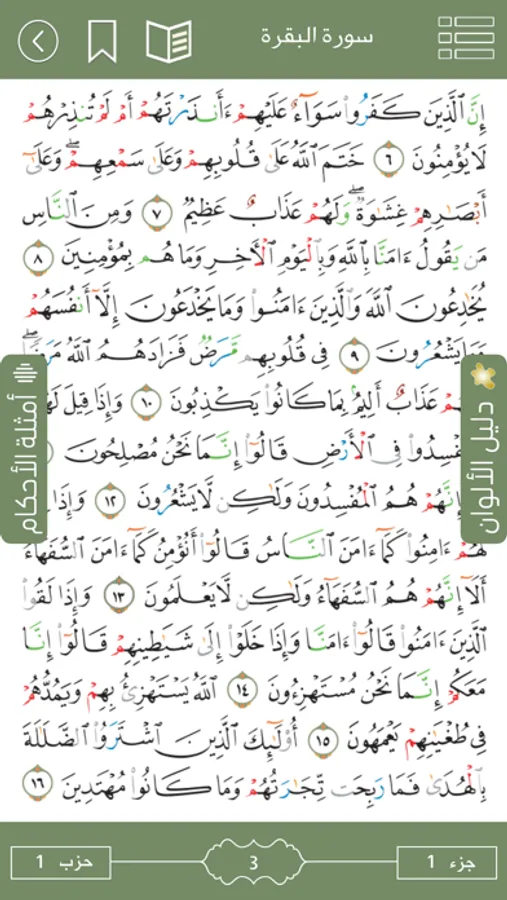 سورة البقرة
إِنَّ ٱلَّذِينَ كَفَرُوا۟ سَوَآءٌ عَلَيْهِمْ ءَأَنذَرْتَهُمْ أَمْ لَمْ تُنذِرْهُمْ
لَا يُؤْمِنُونَ ٦ خَتَمَ ٱللَّهُ عَلَىٰ قُلُوبِهِمْ وَعَلَىٰ سَمْعِهِمْ ۖ وَعَلَىٰٓ
أَبْصَٰرِهِمْ غِشَٰوَةٌ ۖ وَلَهُمْ عَذَابٌ عَظِيمٌ ٧ وَمِنَ ٱلنَّاسِ
مَن يَقُولُ ءَامَنَّا بِٱللَّهِ وَبِٱلْيَوْمِ ٱلْأَخِرِ وَمَا هُم بِمُؤْمِنِينَ ٨
يُخَٰدِعُونَ ٱللَّهَ وَٱلَّذِينَ ءَامَنُوا۟ وَمَا يَخْدَعُونَ إِلَّآ أَنفُسَهُمْ
يَشْعُرُونَ ٩ فِى قُلُوبِهِم مَّرَضٌ فَزَادَهُمُ ٱللَّهُ مَرَضًا ۖ
عَذَابٌ أَلِيمٌۢ بِمَا كَانُوا۟ يَكْذِبُونَ ١٠ وَإِذَا قِيلَ
فِى ٱلْأَرْضِ قَالُوٓا۟ إِنَّمَا نَحْنُ مُصْلِحُونَ
إِنَّهُمْ هُمُ ٱلْمُفْسِدُونَ وَلَٰكِن لَّا يَشْعُرُونَ ١٢ وَإِذَا
لَهُمْ ءَامِنُوا۟ كَمَآ ءَامَنَ ٱلنَّاسُ قَالُوٓا۟ أَنُؤْمِنُ كَمَآ ءَامَنَ ٱلسُّفَهَآءُ
أَلَآ إِنَّهُمْ هُمُ ٱلسُّفَهَآءُ وَلَٰكِن لَّا يَعْلَمُونَ ١٣ وَإِذَا لَقُوا۟
ٱلَّذِينَ ءَامَنُوا۟ قَالُوٓا۟ ءَامَنَّا وَإِذَا خَلَوْا۟ إِلَىٰ شَيَٰطِينِهِمْ قَالُوٓا۟ إِنَّا
مَعَكُمْ إِنَّمَا نَحْنُ مُسْتَهْزِءُونَ ١٤ ٱللَّهُ يَسْتَهْزِئُ بِهِمْ وَيَمُدُّهُمْ
فِى طُغْيَٰنِهِمْ يَعْمَهُونَ ١٥ أُو۟لَٰٓئِكَ ٱلَّذِينَ ٱشْتَرَوُا۟ ٱلضَّلَٰلَةَ
بِٱلْهُدَىٰ فَمَا رَبِحَت تِّجَٰرَتُهُمْ وَمَا كَانُوا۟ مُهْتَدِينَ ١٦
دليل الألوان
أمثلة الأحكام
جزء 1
3
حزب 1